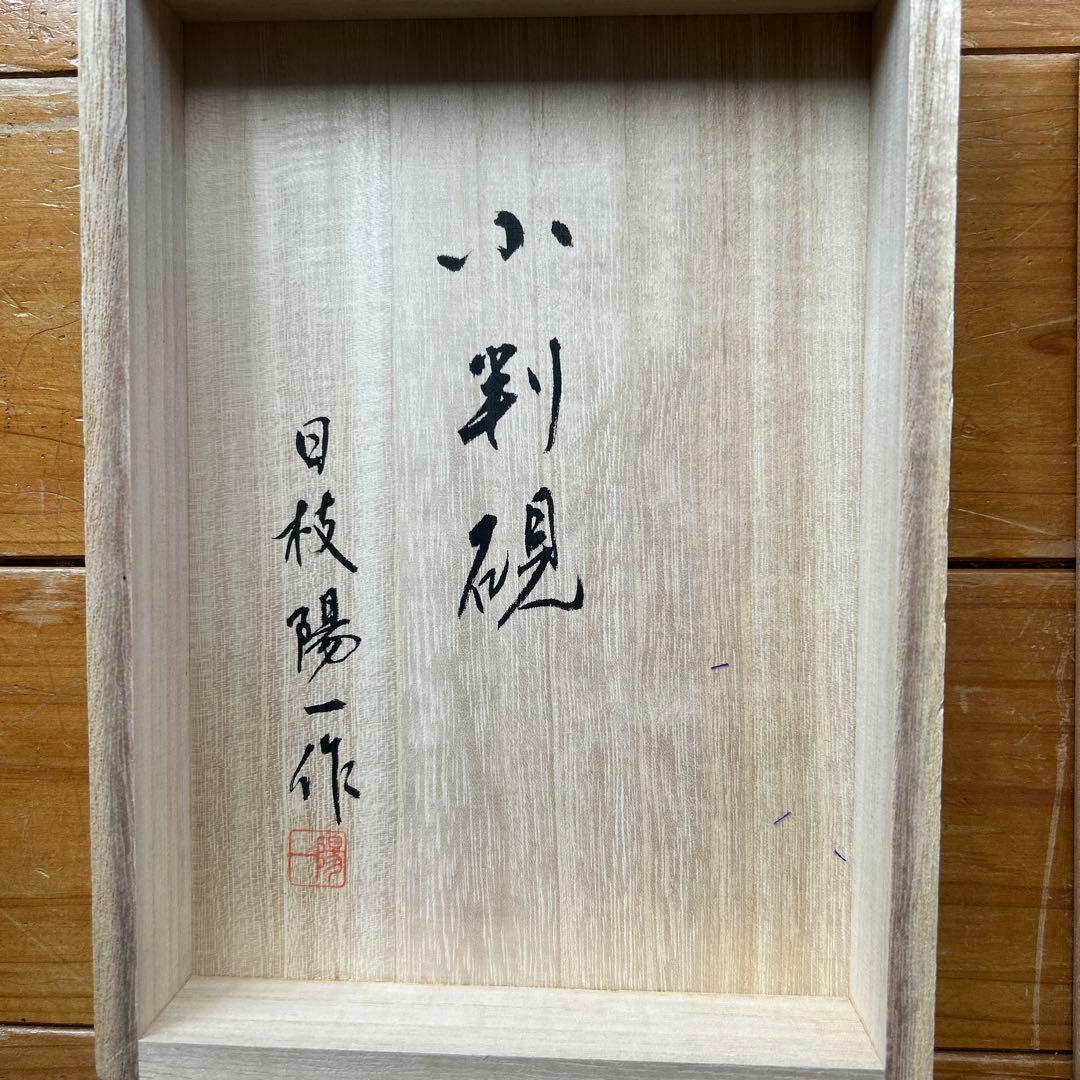 小判硯
日枝陽一作
陽一